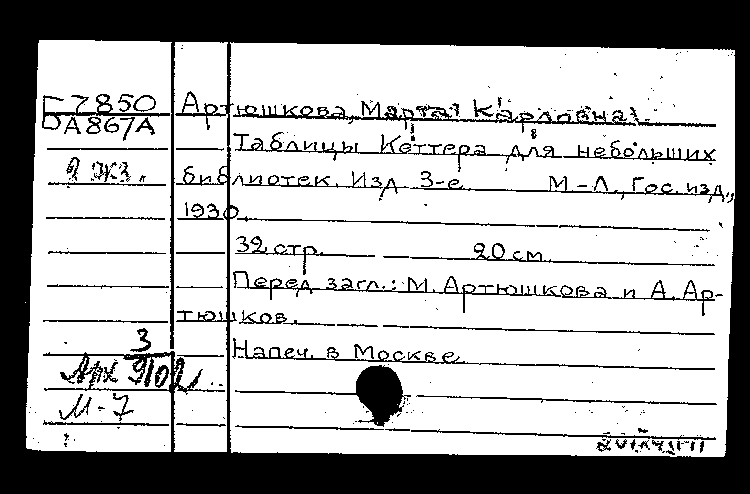 Г-7850 Артюшкова, Марта Карловна.
DA867A
Таблицы Кеттера для небольших
2 экз. библиотек. Изд 3-е М-Л., Гос. изд.,
1930.
32 стр. 20 см
Перед загл.: М. Артюшкова и А. Ар-
тюшков.
Напеч. в Москве
3
Арх
М-7